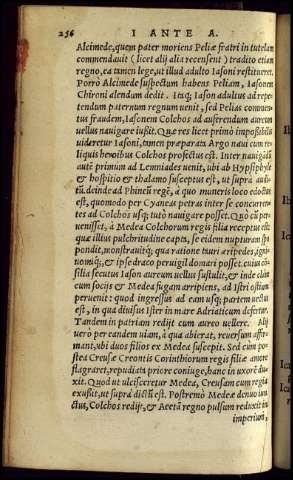 256 I ANTE A.
Alcimede, quem pater moriens Peliæ fratri in tutelam
commendauit (licet alij alia recensent) tradito etiam
regno, ea tamen lege, ut illud adulto Iasoni restitueret.
Porrò Alcimede suspectum habens Peliam, Iasonem
Chironi alendum dedit. Inq; Iason adultus ad repe-
tendum paternum regnum uenit, sed Pelias commen-
tus fraudem, Iasonem Colchos ad auferendum aureum
uellus nauigare iussit. Quæ res licet primò impoßibilis
uideretur Iasoni, tamen præparata Argo naui cum re-
liquis heroibus Colchos profectus est. Inter nauigãdũ
autē primum ad Lemniades uenit, ubi ab Hypsiphyle
& hospitio & thalamo susceptus est, ut supra audi-
tũ. deinde ad Phineũ regē, à quo muneris loco edoctus
est, quomodo per Cyaneas petras inter se concurren-
tes ad Colchos usq; tutò nauigare posset. Quò cũ per-
uenisset, à Medea Colchorum regis filia receptus est:
quæ illius pulchritudine capta, se eidem nupturam spo
pondit, monstrauitq; qua ratione tauri æripedes, igni-
uomiq;, & ipse draco peruigil domari posset. cuius cõ-
silia secutus Iason aureum uellus sustulit, & inde clàm
cum socijs & Medea fugam arripiens, ad Istri ostium
peruenit: quod ingressus ad eam usq; partem uectus
est, in qua diuisus Ister in mare Adriaticum defertur.
Tandem in patriam redijt cum aureo uellere. Alij
uerò per eandem uiam, à qua abierat, reuersum affir-
mant, ubi duos filios ex Medea suscepit. Sed cum po-
stea Creusæ Creontis Corinthiorum regis filiæ amore
flagraret, repudiata priore coniuge, hanc in uxorē du-
xit. Quod ut ulcisceretur Medea, Creusam cum regia
exußit, ut suprà dictũ est. Postremò Medeæ denuo iun
ctus, Colchos redijt, & Aeetã regno pulsum reduxit in
imperium,